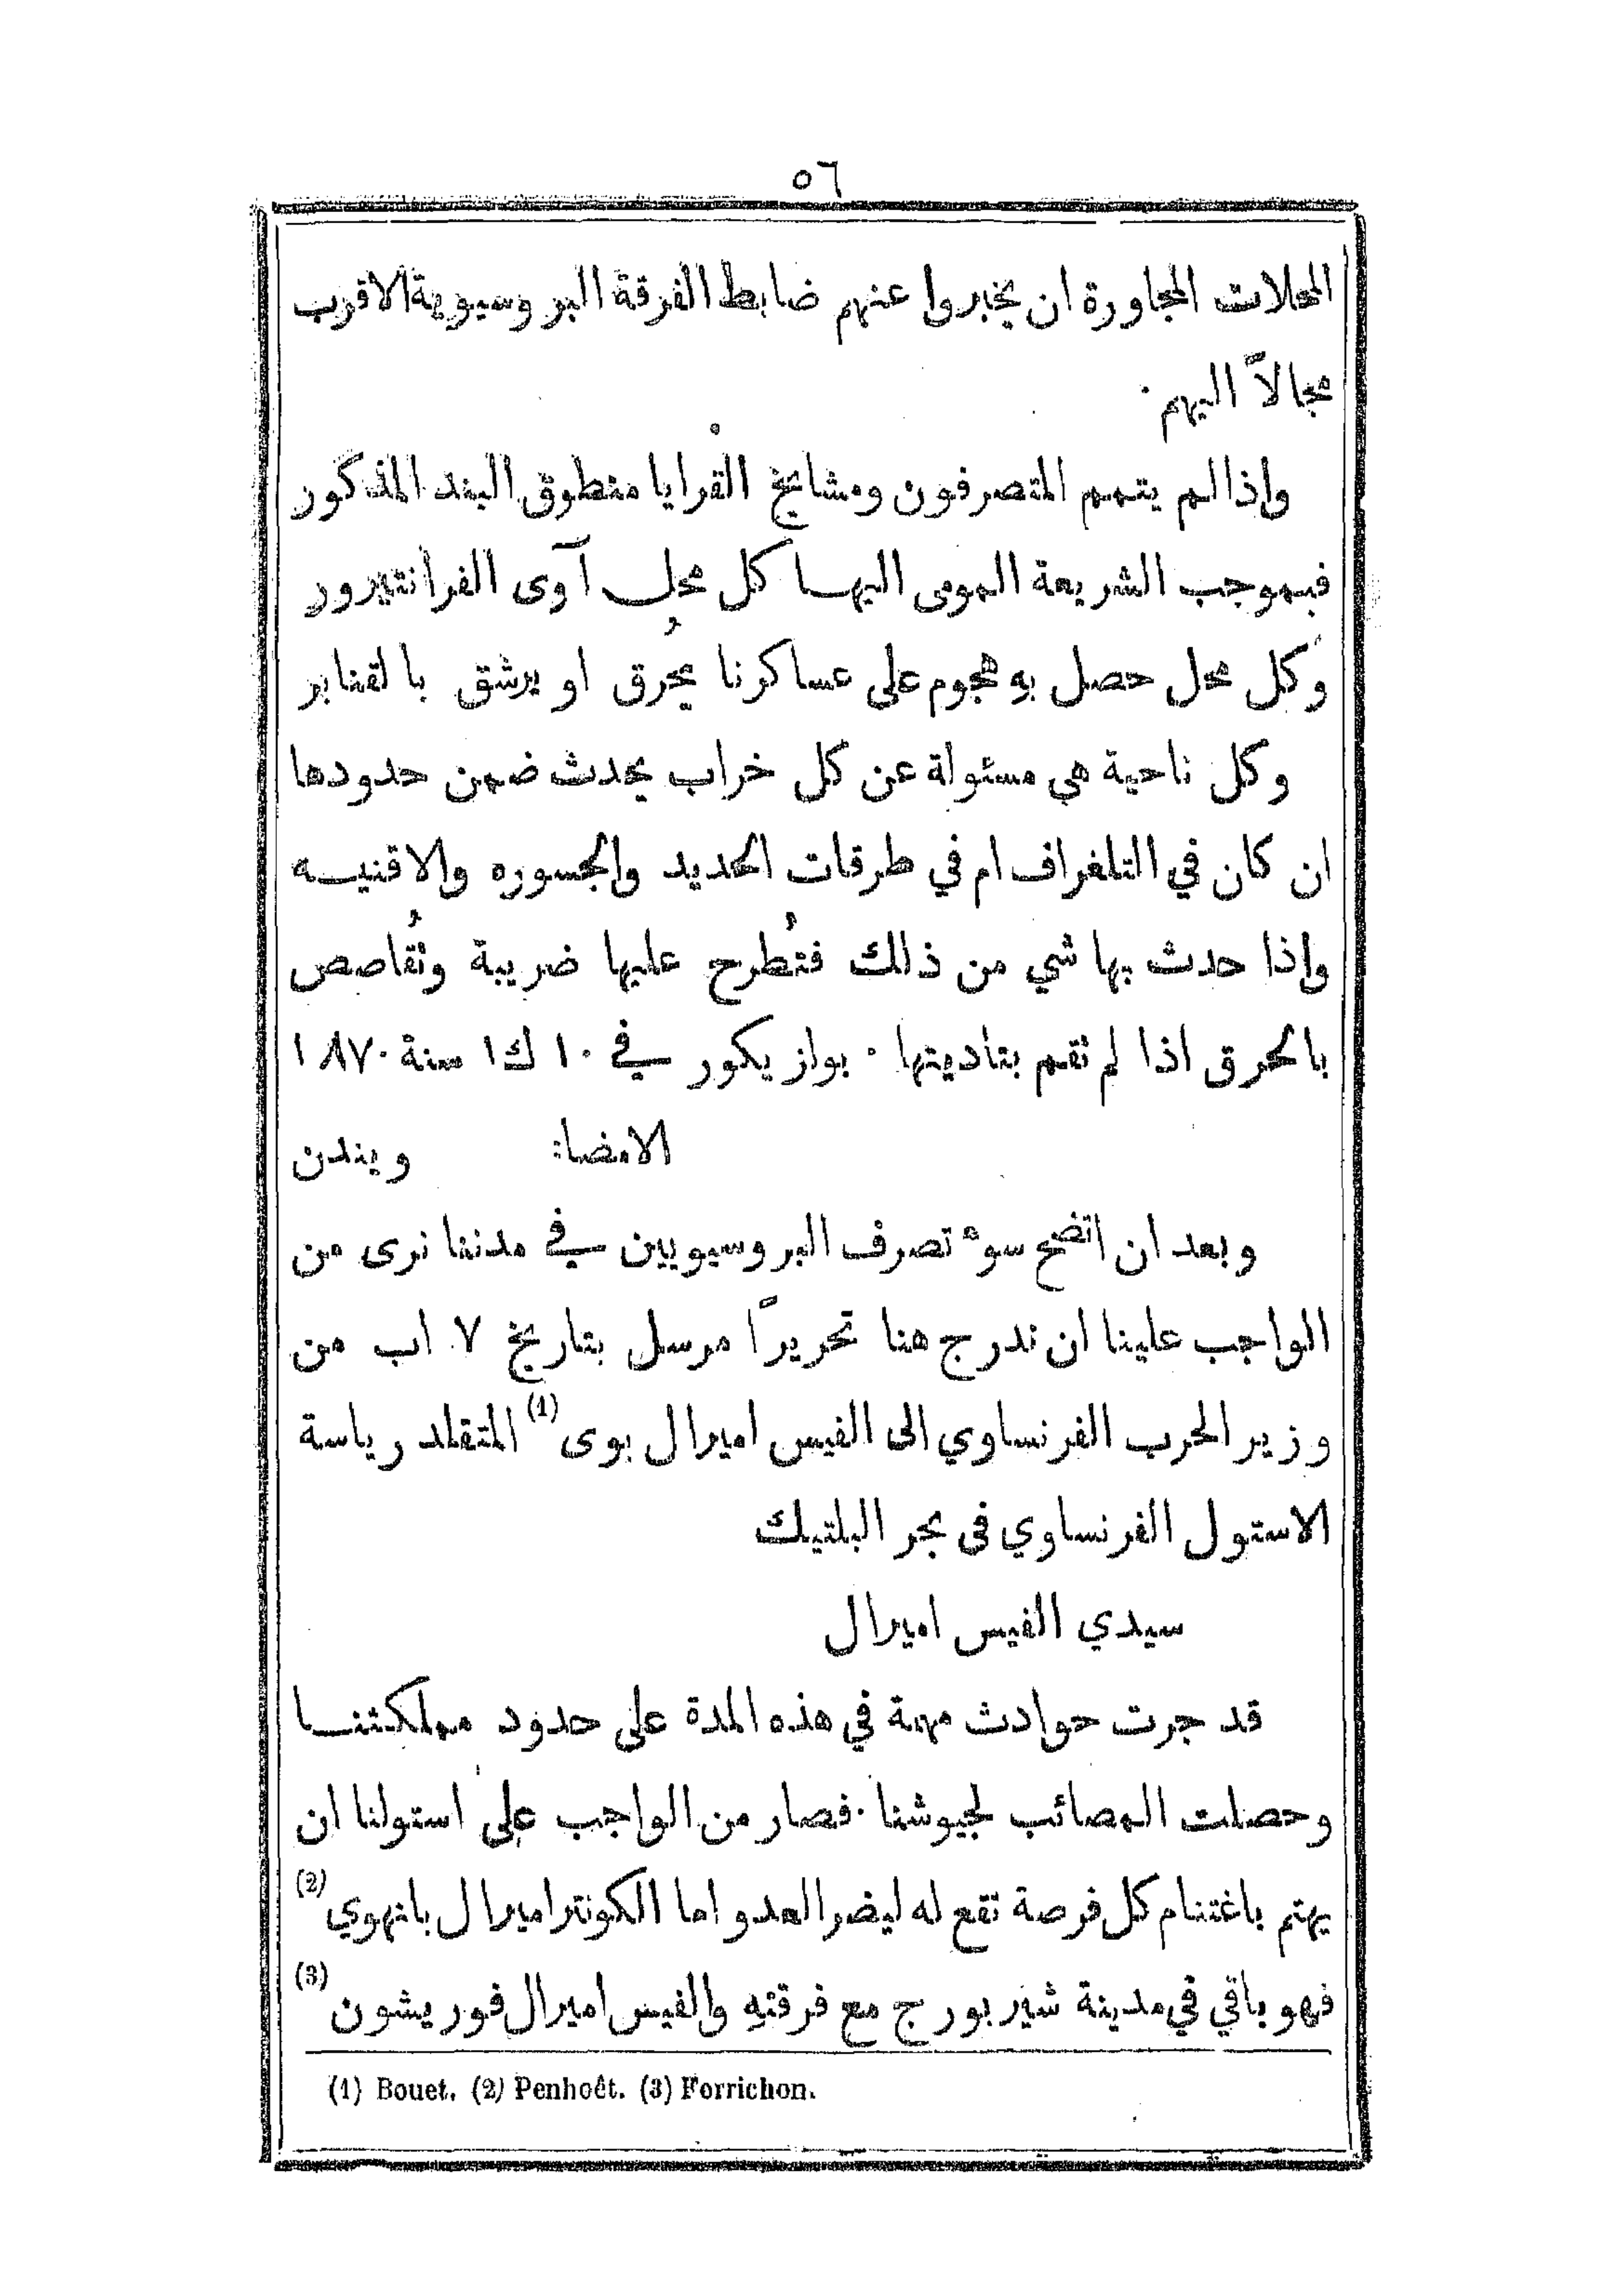 ٥٦
المحلات المجاورة ان يخبروا عنهم ضابط الفرقة البروسيوية الاقرب
مجالاً اليهم .
واذا لم يتمم المتصرفون ومشايخ القرايا منطوق البند المذكور
فبموجب الشريعة المومى اليها كل محل آوى الفرانتيرور
وكل محل حصل به هجوم على عساكرنا يُحرق او يرشق بالقنابر
وكل ناحية هي مسئولة عن كل خراب يحدث ضمن حدودها
ان كان في التلغراف ام في طرقات الحديد والجسوره والاقنيه
واذا حدث بها شي من ذلك فتُطرح عليها ضريبة وتُقاصص
بالحرق اذا لم تقم بتاديتها . بواز يكور في ١٠ ك١ سنة ١٨٧٠
الامضا: ويندن
وبعد ان اتضح سوء تصرف البروسيويين في مدننا نرى من
الواجب علينا ان ندرج هنا تحريرًا مرسل بتاريخ ٧ اب من
وزير الحرب الفرنساوي الى الفيس اميرال بوى (1) المتقلد رياسة
الاستول الفرنساوي فى بحر البلتيك
سيدي الفيس اميرال
قد جرت حوادث مهمة في هذه المدة على حدود مملكتنا
وحصلت المصائب لجيوشنا . فصار من الواجب على استولنا ان
يهتم باغتنام كل فرصة تقع له ليضر العدو اما الكونتراميرال بانهوي (2)
فهو باقي في مدينة شيربورج مع فرقتهِ والفيس اميرال فوريشون (3)
(1) Bouet. (2) Penhoêt. (3) Forrichon.